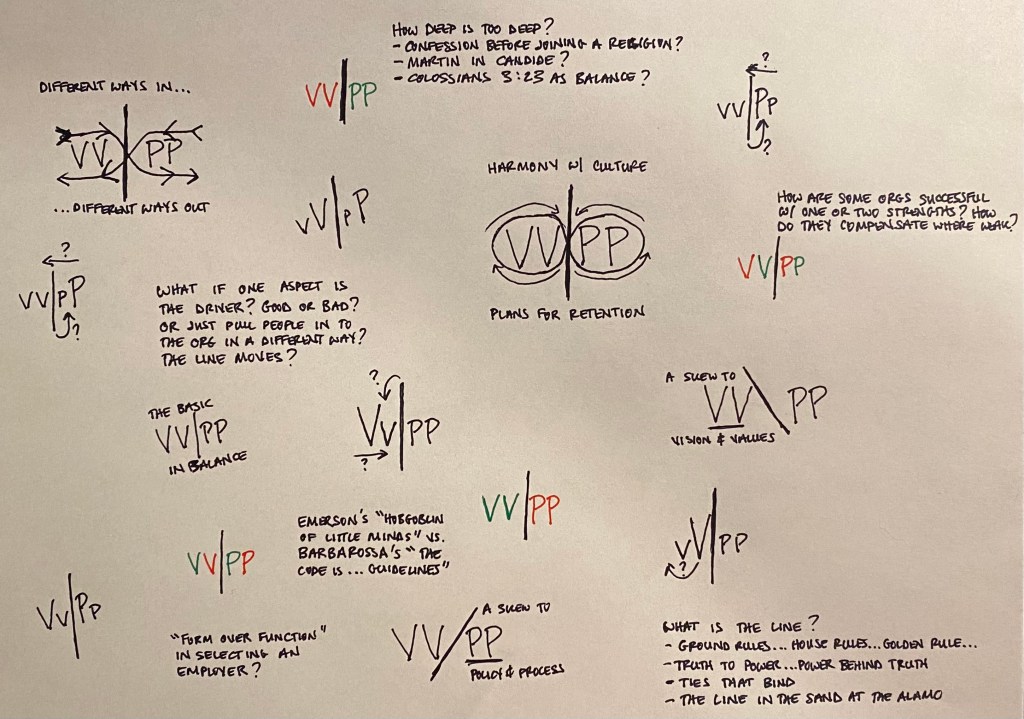 HOW DEEP IS TOO DEEP?
- CONFESSION BEFORE JOINING A RELIGION?
- MARTIN IN CANDIDE?
- COLOSSIANS 3:23 AS BALANCE?
DIFFERENT WAYS IN...
VV|PP
...DIFFERENT WAYS OUT
VV|PP
?
VV|PP
?
VV|PP
HARMONY W/ CULTURE
VV|PP
PLANS FOR RETENTION
HOW ARE SOME ORGS SUCCESSFUL
W/ ONE OR TWO STRENGTHS? HOW
DO THEY COMPENSATE WHERE WEAK?
VV|PP
?
VV|PP
?
WHAT IF ONE ASPECT IS
THE DRIVER? GOOD OR BAD?
OR JUST PULL PEOPLE IN TO
THE ORG IN A DIFFERENT WAY?
THE LINE MOVES?
THE BASIC
VV|PP
IN BALANCE
?
VV|PP
?
A SKEW TO
VV\PP
VISION & VALUES
EMERSON'S "HOBGOBLIN
OF LITTLE MINDS" VS.
BARBAROSSA'S "THE
CODE IS... GUIDELINES"
VV|PP
VV|PP
VV|PP
?
VV|PP
"FORM OVER FUNCTION"
IN SELECTING AN
EMPLOYER?
A SKEW TO
VV/PP
POLICY & PROCESS
WHAT IS THE LINE?
- GROUND RULES... HOUSE RULES... GOLDEN RULE...
- TRUTH TO POWER... POWER BEHIND TRUTH
- TIES THAT BIND
- THE LINE IN THE SAND AT THE ALAMO